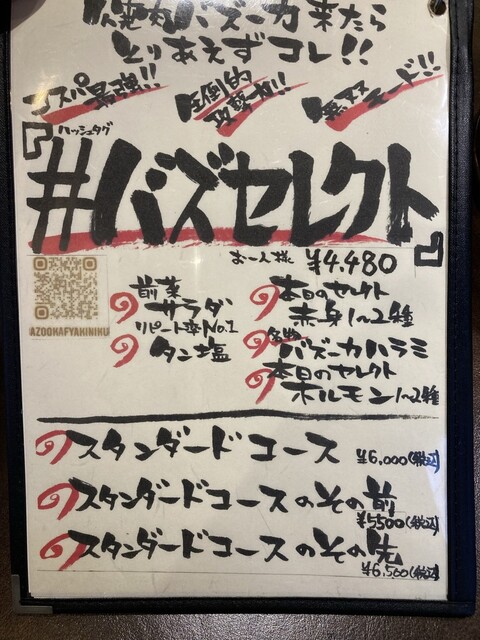 焼肉バズーカ来たら
とりあえずコレ!!
コスパ最強!! 圧倒的攻撃力!! 無双モード!!
ハッシュタグ
『#バズセレクト』
お一人様 ¥4,480
前菜
サラダ
リピート率No.1
タン塩
本日のセレクト
赤身1〜2種
名物
バズーカハラミ
本日のセレクト
ホルモン1〜2種
スタンダードコース ¥6,000(税込)
スタンダードコースのその前
¥5500(税込)
スタンダードコースのその先
¥6,500(税込)